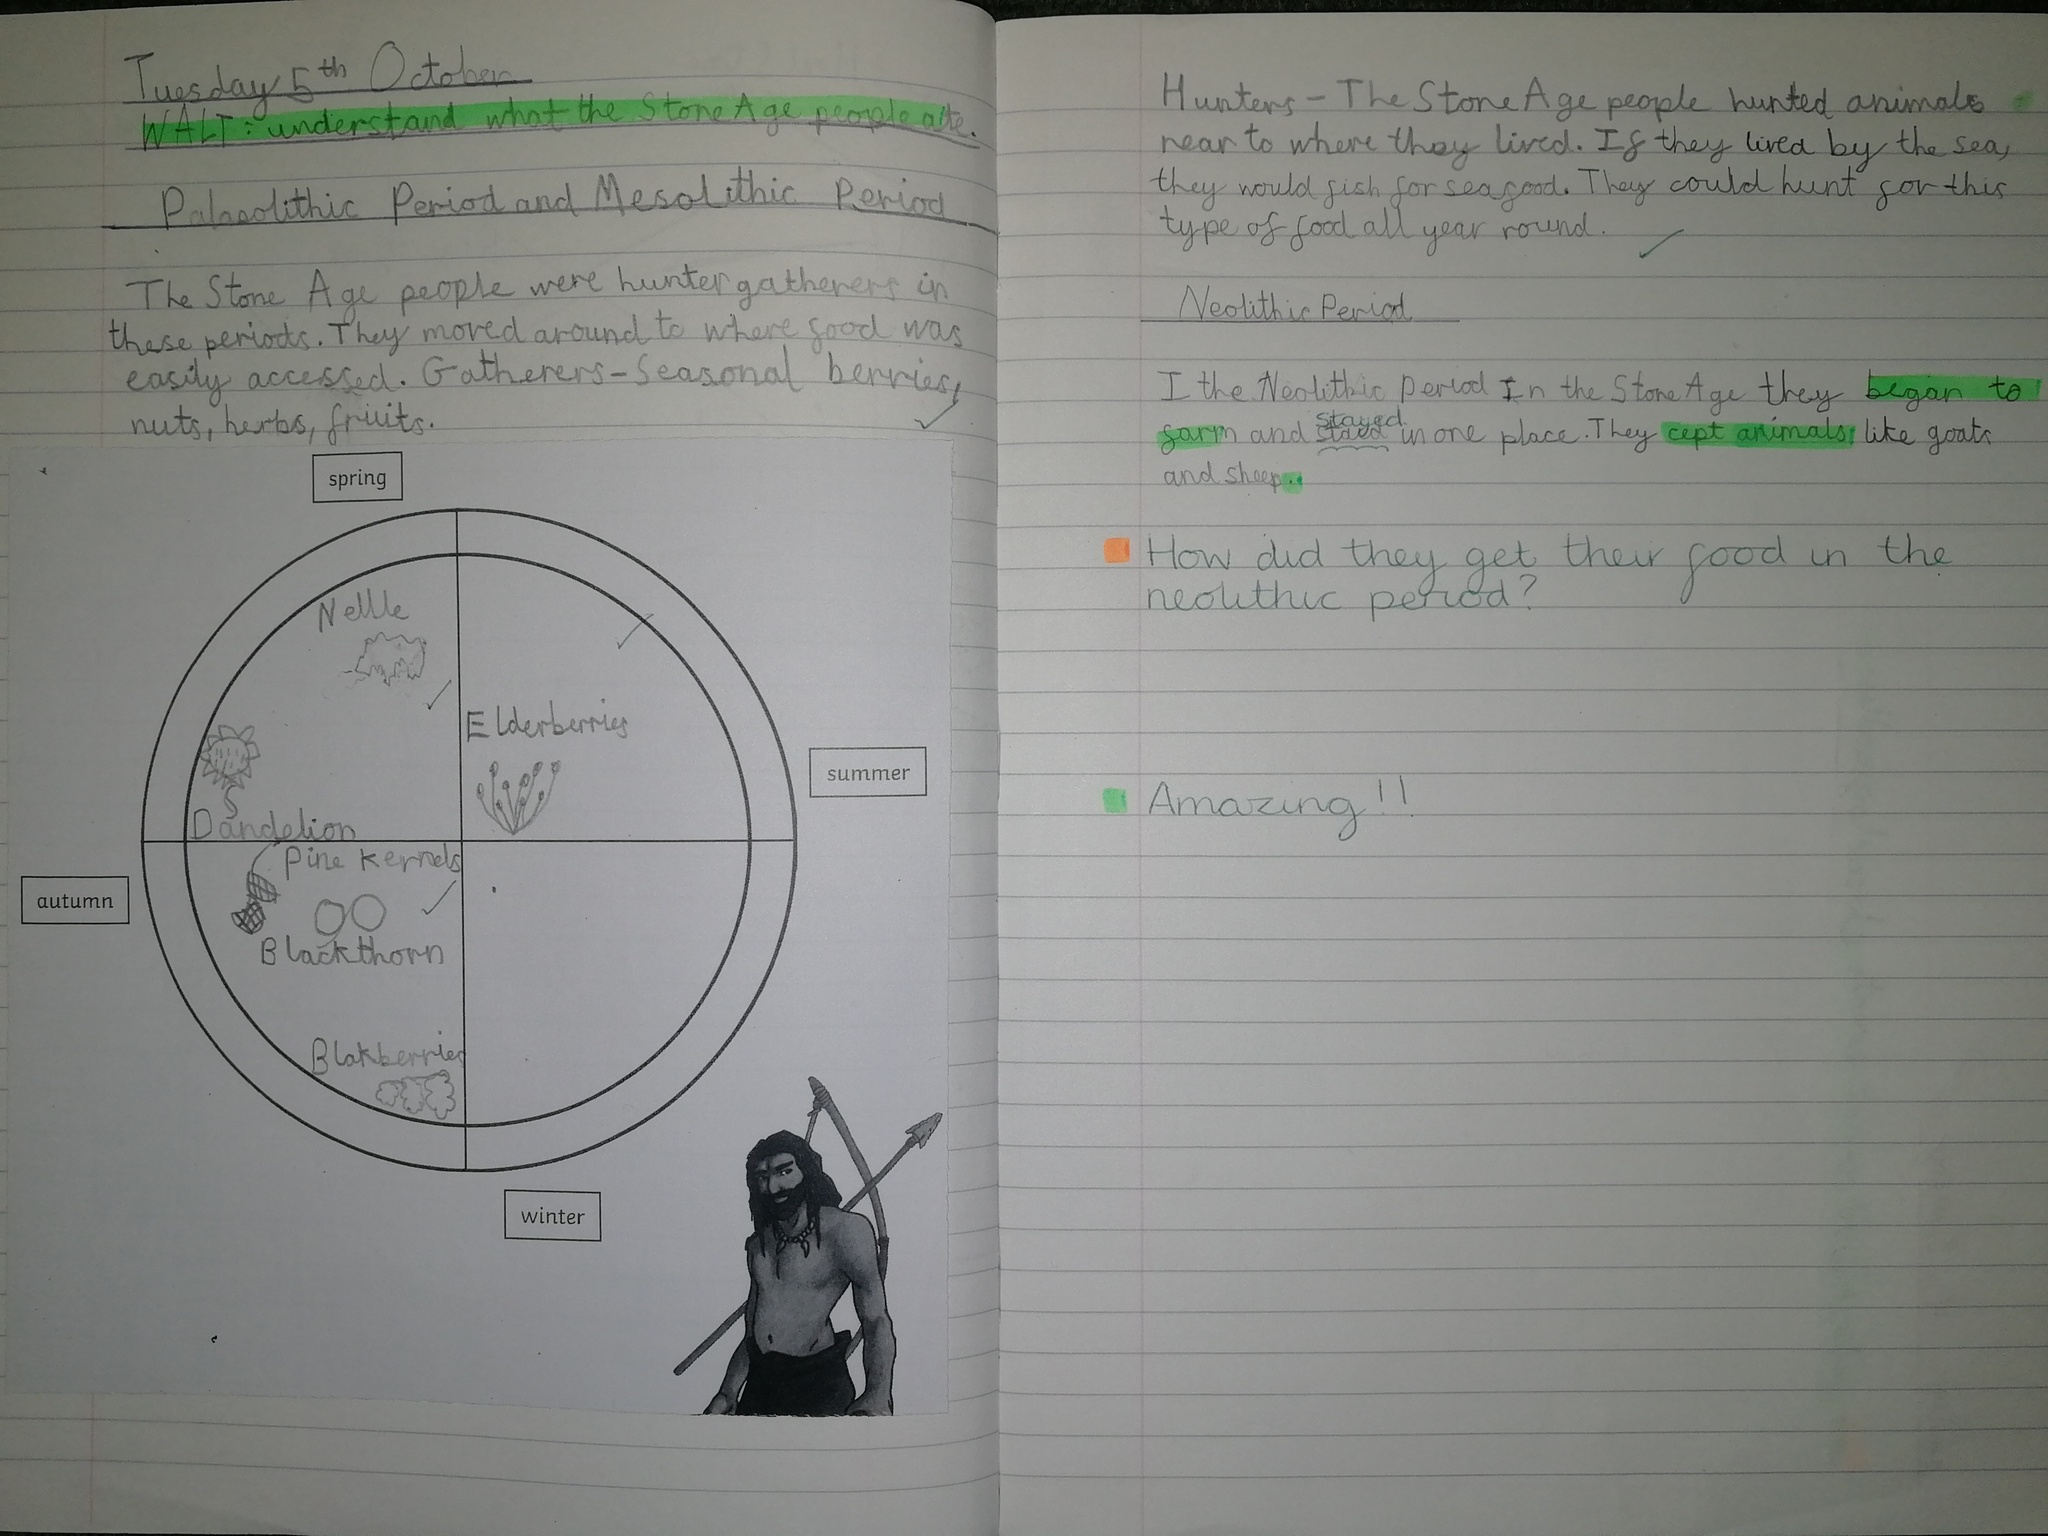 Tuesday 5th October
WALT: understand what the Stone Age people ate.
Palaeolithic Period and Mesolithic Period
The Stone Age people were hunter gatherers in
these periods. They moved around to where food was
easily accessed. Gatherers - Seasonal berries,
nuts, herbs, fruits.
spring
Nettle
Elderberries
summer
Dandelion
Pine kernels
autumn
Blackthorn
Blakberries
winter
Hunters - The Stone Age people hunted animals
near to where they lived. If they lived by the sea,
they would fish for seafood. They could hunt for this
type of food all year round.
Neolithic Period
I the Neolithic Period In the Stone Age they began to
farm and staed stayed in one place. They cept animals like goats
and sheep.
How did they get their food in the
neolithic period?
Amazing!!